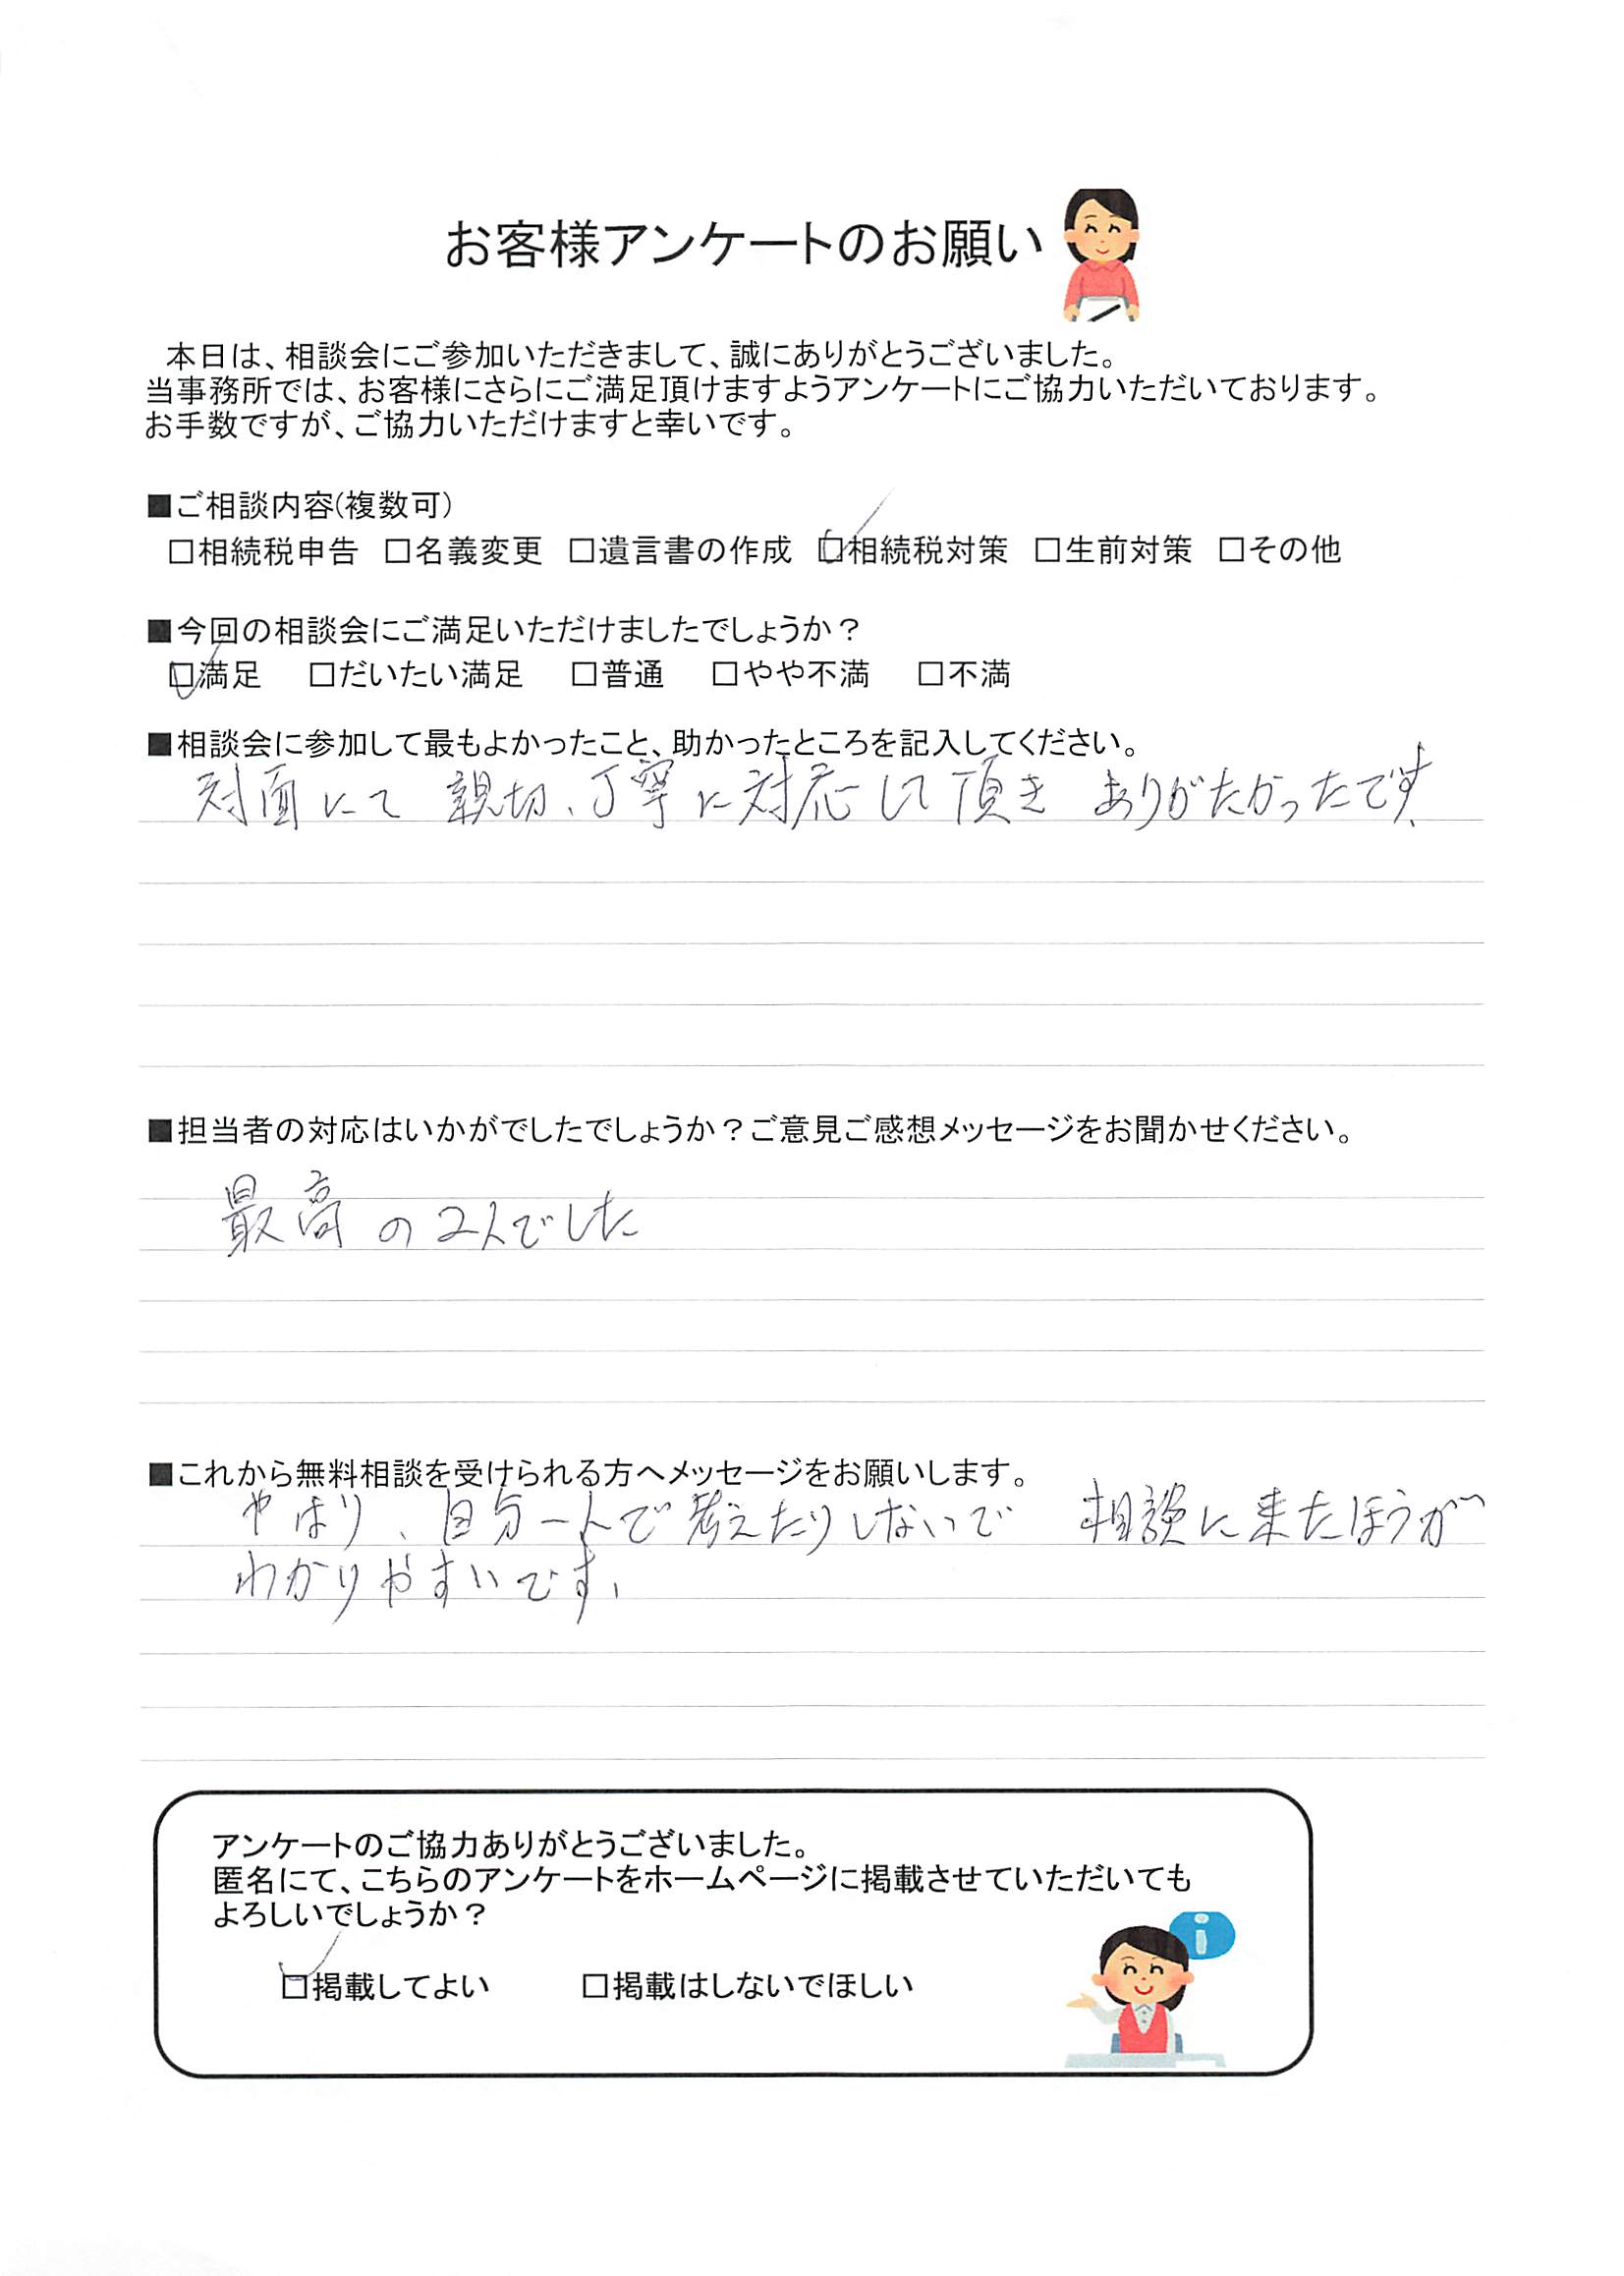 お客様アンケートのお願い
本日は、相談会にご参加いただきまして、誠にありがとうございました。
当事務所では、お客様にさらにご満足頂けますようアンケートにご協力いただいております。
お手数ですが、ご協力いただけますと幸いです。
■ご相談内容(複数可)
□相続税申告 □名義変更 □遺言書の作成 ☑相続税対策 □生前対策 □その他
■今回の相談会にご満足いただけましたでしょうか？
☑満足 □だいたい満足 □普通 □やや不満 □不満
■相談会に参加して最もよかったこと、助かったところを記入してください。
対面にて 親切、丁寧に対応して頂き ありがたかったです、
■担当者の対応はいかがでしたでしょうか？ご意見ご感想メッセージをお聞かせください。
最高の2人でした
■これから無料相談を受けられる方へメッセージをお願いします。
やはり、自分一人で考えたりしないで 相談に来たほうが
わかりやすいです、
アンケートのご協力ありがとうございました。
匿名にて、こちらのアンケートをホームページに掲載させていただいても
よろしいでしょうか？
i
☑掲載してよい □掲載はしないでほしい